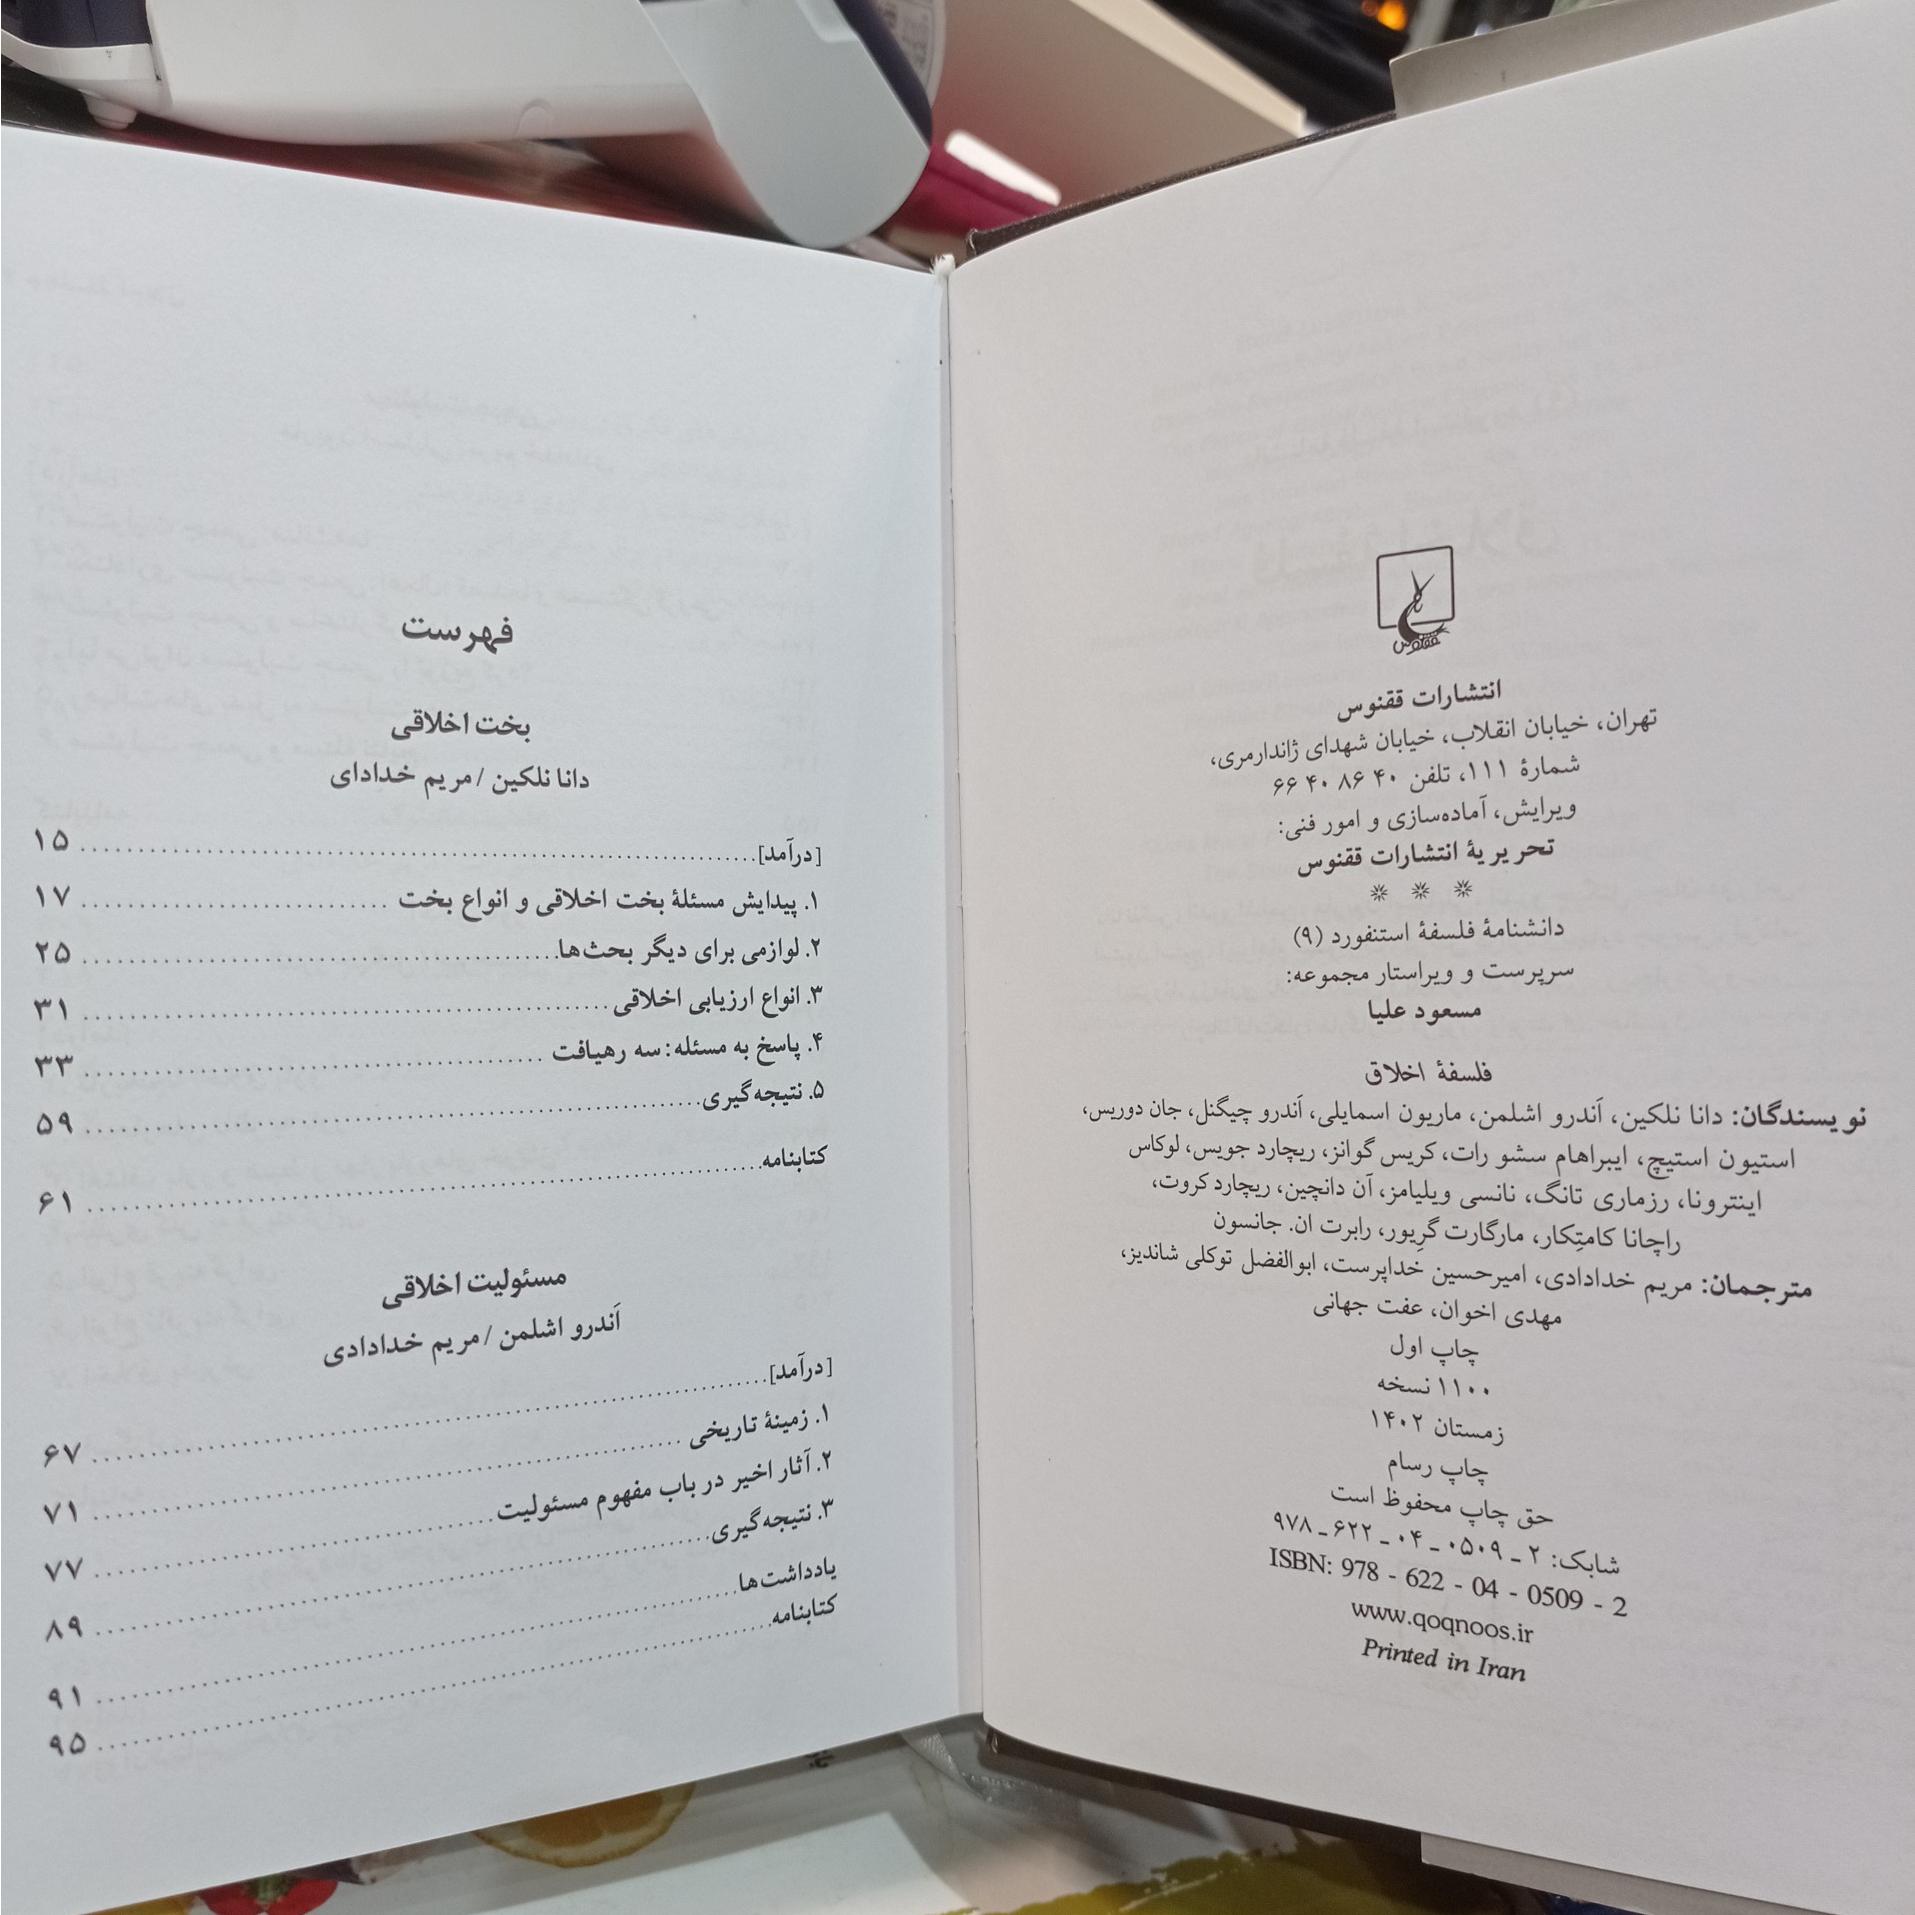 ققنوس
انتشارات ققنوس
تهران، خیابان انقلاب، خیابان شهدای ژاندارمری،
شمارهٔ ۱۱۱، تلفن ۴۰ ۸۶ ۴۰ ۶۶
ویرایش، آماده‌سازی و امور فنی:
تحریریهٔ انتشارات ققنوس
* * *
دانشنامهٔ فلسفهٔ استنفورد (۹)
سرپرست و ویراستار مجموعه:
مسعود علیا
فلسفهٔ اخلاق
نویسندگان: دانا نلکین، اَندرو اشلمن، ماریون اسمایلی، اَندرو چیگنل، جان دوریس،
استیون استیچ، ایبراهام سشو رات، کریس گوانز، ریچارد جویس، لوکاس
اینترونا، رزماری تانگ، نانسی ویلیامز، آن دانچین، ریچارد کروت،
راچانا کامتِکار، مارگارت گریور، رابرت ان. جانسون
مترجمان: مریم خدادادی، امیرحسین خداپرست، ابوالفضل توکلی شاندیز،
مهدی اخوان، عفت جهانی
چاپ اول
۱۱۰۰ نسخه
زمستان ۱۴۰۲
چاپ رسام
حق چاپ محفوظ است
شابک: ۲ ـ ۰۵۰۹ ـ ۰۴ ـ ۶۲۲ ـ ۹۷۸
ISBN: 978 - 622 - 04 - 0509 - 2
www.qoqnoos.ir
Printed in Iran
فهرست
بخت اخلاقی
دانا نلکین / مریم خدادای
[درآمد] ۱۵
۱. پیدایش مسئلهٔ بخت اخلاقی و انواع بخت ۱۷
۲. لوازمی برای دیگر بحث‌ها ۲۵
۳. انواع ارزیابی اخلاقی ۳۱
۴. پاسخ به مسئله: سه رهیافت ۳۳
۵. نتیجه‌گیری ۵۹
کتابنامه ۶۱
مسئولیت اخلاقی
اَندرو اشلمن / مریم خدادادی
[درآمد] ۶۷
۱. زمینهٔ تاریخی ۷۱
۲. آثار اخیر در باب مفهوم مسئولیت ۷۷
۳. نتیجه‌گیری ۸۹
یادداشت‌ها ۹۱
کتابنامه ۹۵